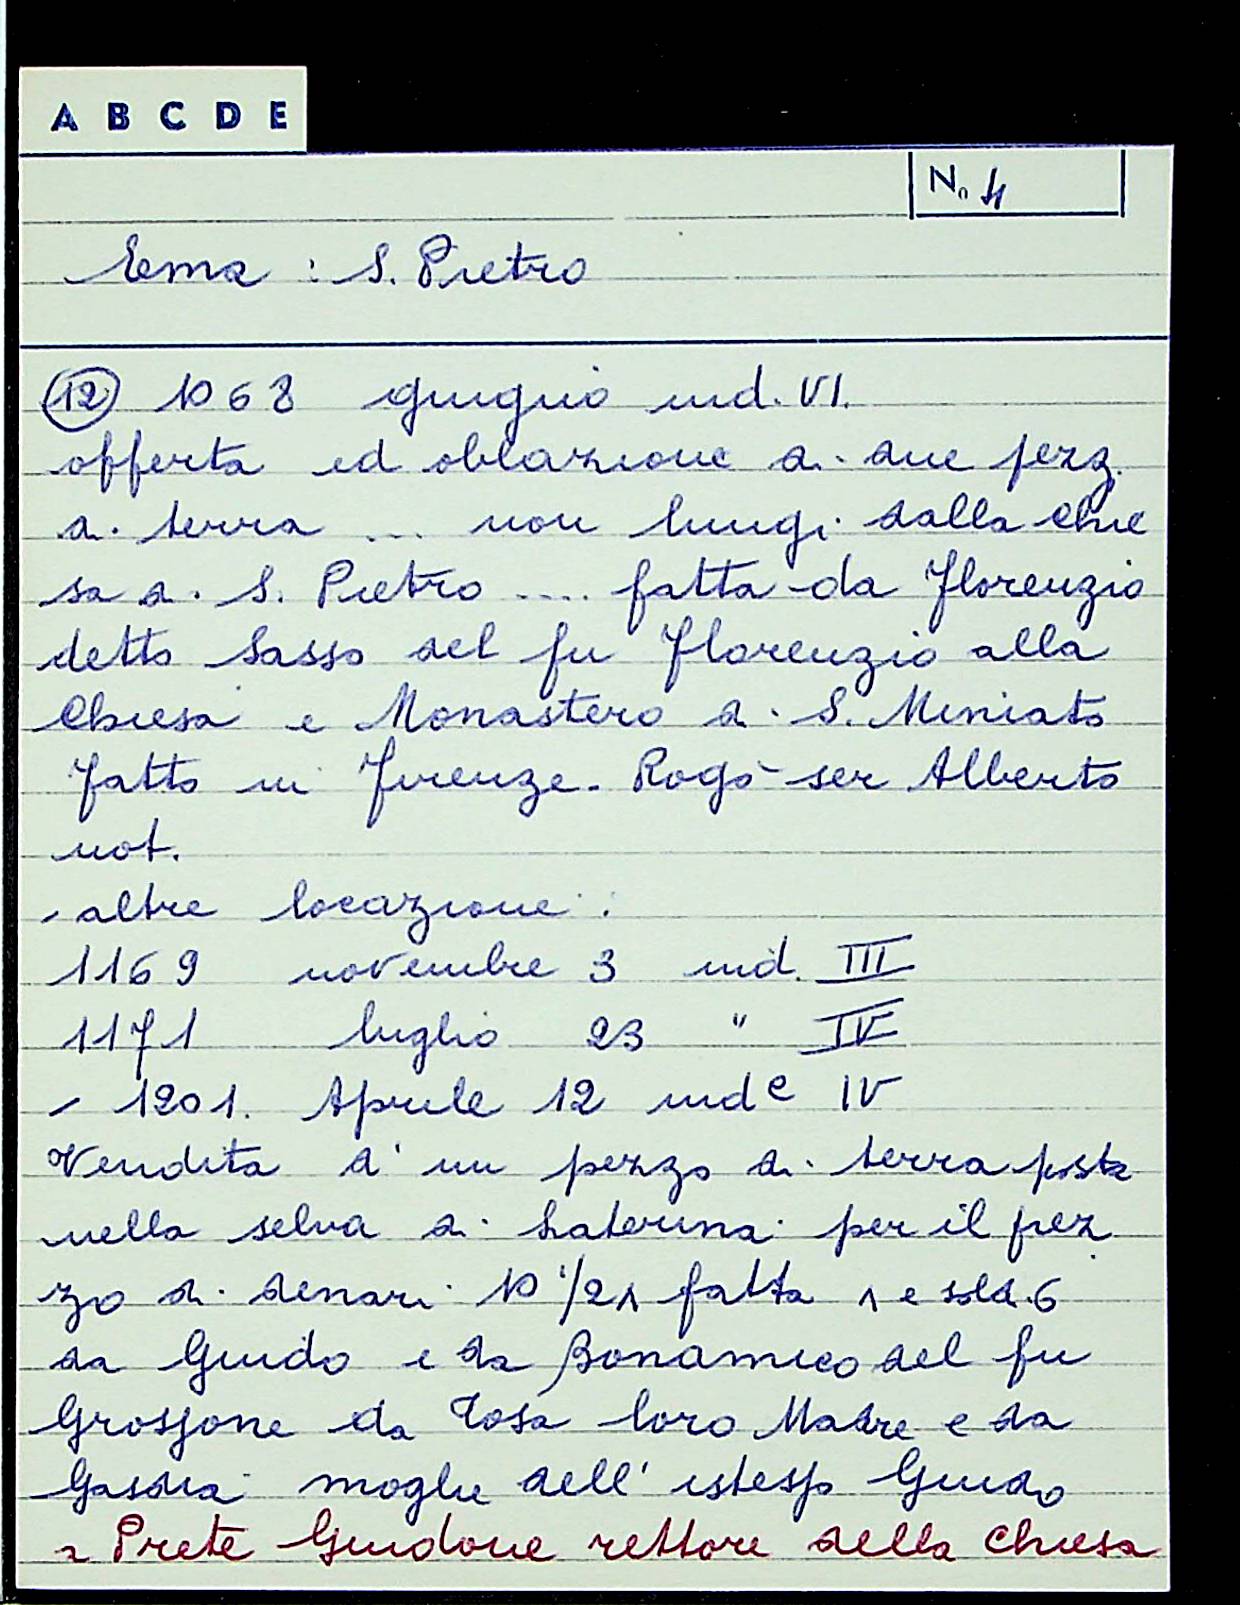 A B C D E
No 4
Ema : S. Pietro
(12) 1068 giugno ind. VI.
offerta ed oblazione di due pezzi
di terra ... non lungi dalla chie
sa di S. Pietro .... fatta da Florenzio
detto Sasso del fu Florenzio alla
Chiesa e Monastero di S. Miniato
fatto in Firenze. Rogò ser Alberto
not.
- altre locazione :
1169 novembre 3 ind. III
1171 luglio 23 " IV
- 1201. Aprile 12 indᵉ IV
Vendita di un pezzo di terra posta
nella selva di Laterina per il prez
zo di denari 10 1/2 fatta 1 e sold. 6
da Guido e da Bonamico del fu
Grossone da Tosa loro Madre e da
Gasdia moglie dell' istesso Guido
a Prete Guidone rettore della chiesa